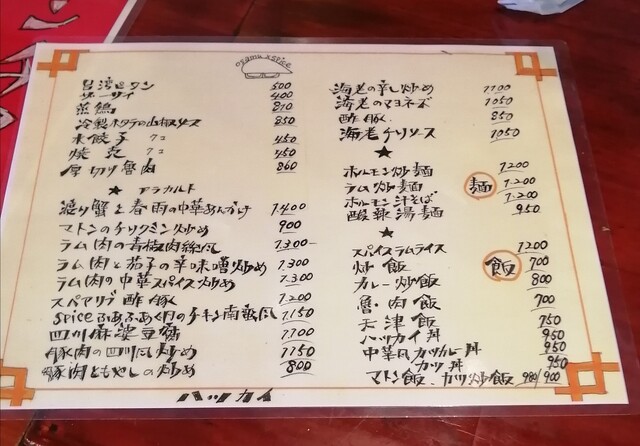 台湾ピータン 500
ザーサイ 400
蒸鶏 810
冷製ホタテの山椒ソース 850
水餃子 7コ 450
焼売 7コ 450
厚切り魯肉 860
★ アラカルト
渡り蟹と春雨の中華あんかけ 1.400
マトンのチリクミン炒め 900
ラム肉の青椒肉絲風 1.300
ラム肉と茄子の辛味噌炒め 1.300
ラム肉の中華スパイス炒め 1.300
スペアリブ酢豚 1.200
spiceふぁふぁ 1.150
四川麻婆豆腐 1.100
豚肉の四川風炒め 1150
豚肉ともやしの炒め 800
ハッカイ
海老の辛し炒め 1100
海老のマヨネーズ 1050
酢豚 850
海老チリソース 1050
★
麺
ホルモン炒麺 1200
ラム炒麺 1.200
ホルモン汁そば 1.200
酸辣湯麺 950
★
飯
スパイスラムライス 1200
炒飯 700
カレー炒飯 800
魯肉飯 700
天津飯 750
ハッカイ丼 950
中華風カツカレー丼 950
カツ丼 950
マトン飯・カツ炒飯 980/900